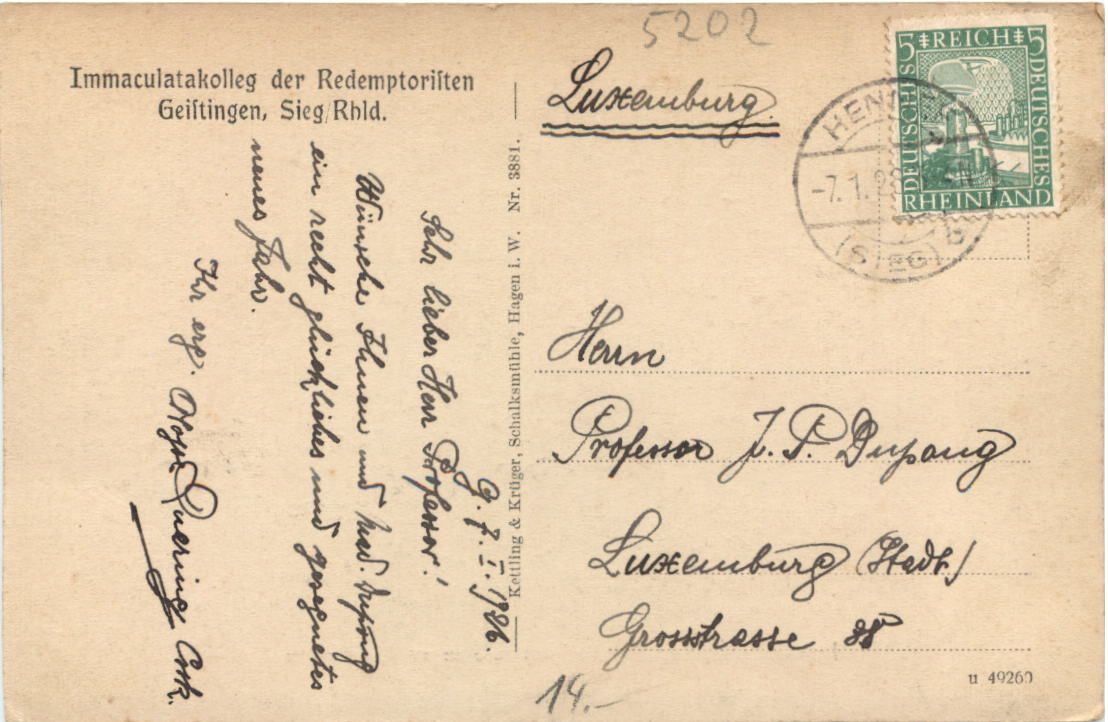 5202
Immaculatakolleg der Redemptoriſten
Geiſtingen, Sieg/Rhld.
Luxemburg
5 REICH 5
DEUTSCHES
DEUTSCHES
RHEINLAND
HENN
-7.1.26
(SIEG) b
G. 7. I. 1926.
Sehr lieber Herr Professor!
Wünsche Ihnen und Mad. Dupong
ein recht glückliches und gesegnetes
neues Jahr.
Ihr erg.
Kettling & Krüger, Schalksmühle, Hagen i. W. Nr. 3881.
Herrn
Professor J. P. Dupong
Luxemburg (Stadt)
Grossstrasse 38
u 49260
14.-